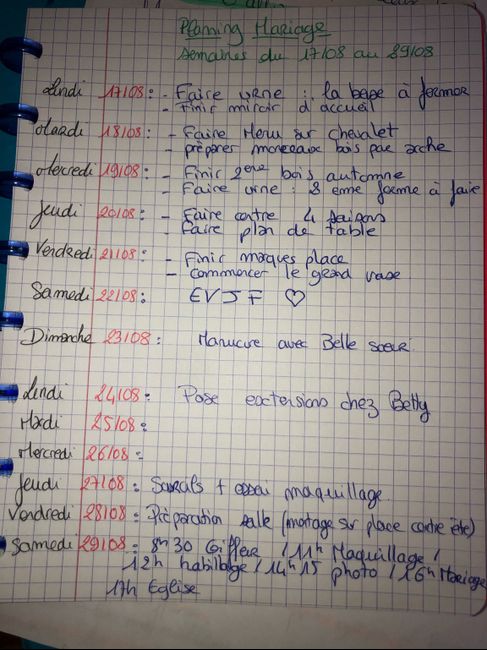 Planing Mariage
Semaines du 17/08 au 29/08
Lundi 17/08: - Faire urne : la base à former
- Finir miroir d'accueil
Mardi 18/08: - Faire Menu sur chevalet
- préparer morceaux bois par arche
Mercredi 19/08: - Finir 2ème bois automne
- Faire urne : 2 eme forme à faire
Jeudi 20/08: - Faire contre 4 saisons
- Faire plan de table
Vendredi 21/08: - Finir marques place
- Commencer le grand vase
Samedi 22/08: EVJF ♡
Dimanche 23/08: Manucure avec Belle soeur
Lundi 24/08: Pose extensions chez Betty
Mardi 25/08:
Mercredi 26/08:
Jeudi 27/08: + essai maquillage
Vendredi 28/08: Préparation salle (montage sur place contre été)
Samedi 29/08: 8h30 Coiffeur / 11h Maquillage /
12h habillage / 14h15 photo / 16h Mariage
17h Eglise